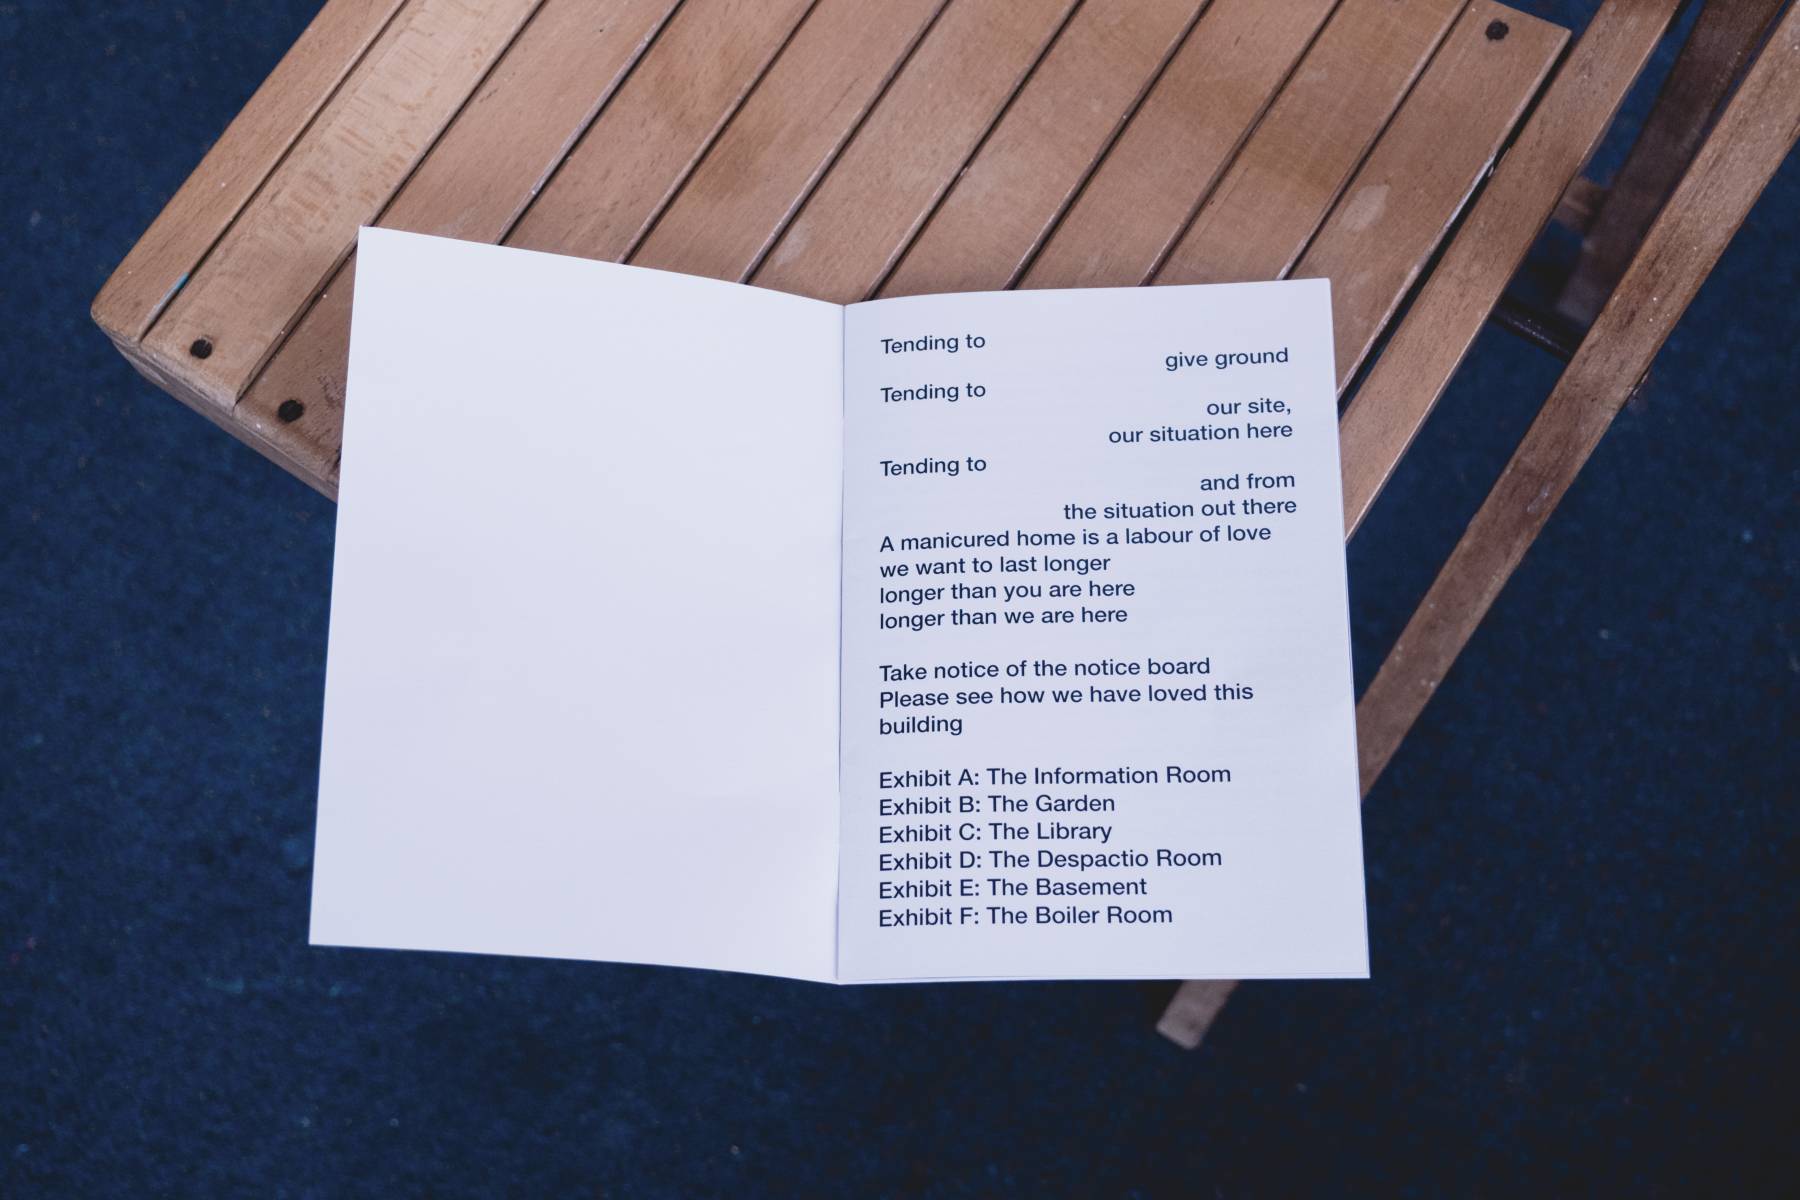 Tending to
give ground
Tending to
our site,
our situation here
Tending to
and from
the situation out there
A manicured home is a labour of love
we want to last longer
longer than you are here
longer than we are here
Take notice of the notice board
Please see how we have loved this
building
Exhibit A: The Information Room
Exhibit B: The Garden
Exhibit C: The Library
Exhibit D: The Despactio Room
Exhibit E: The Basement
Exhibit F: The Boiler Room